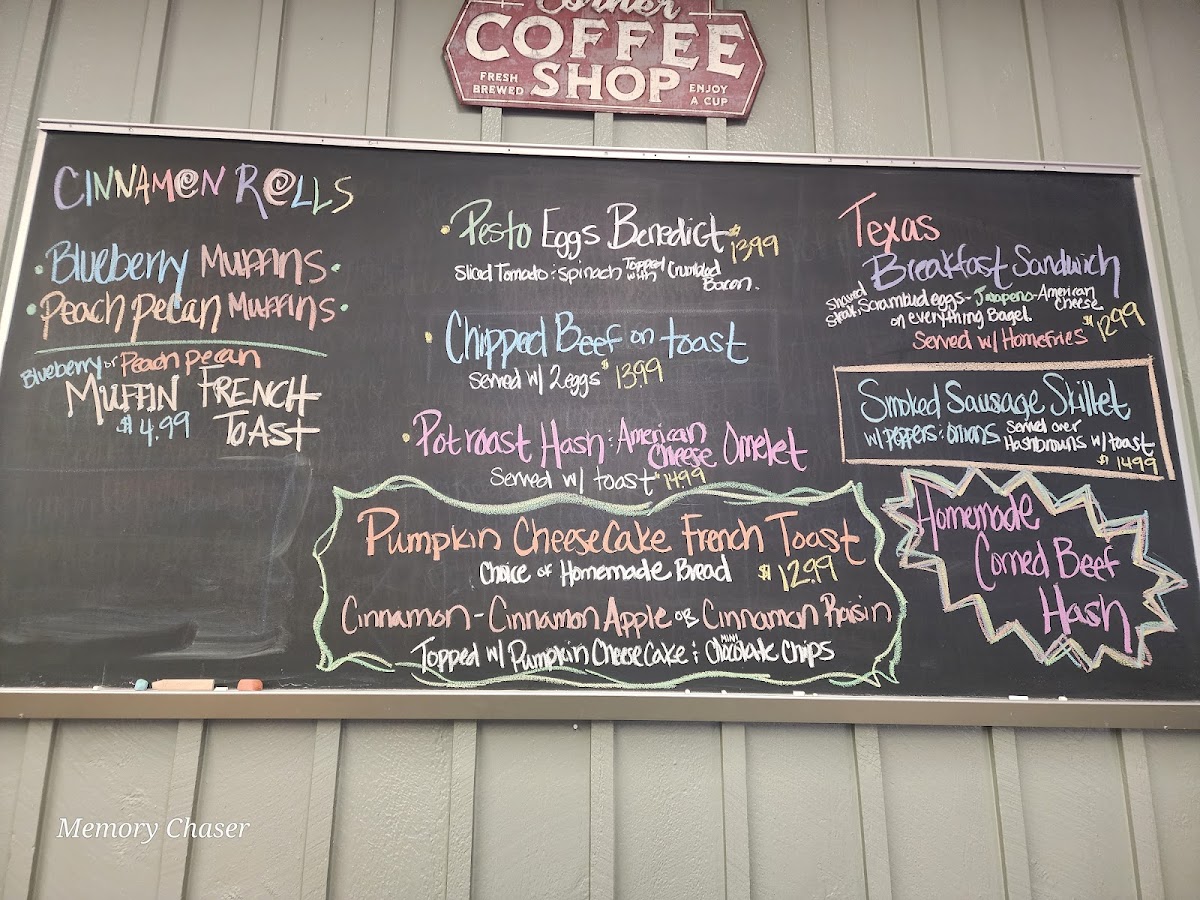 Corner
COFFEE
SHOP
FRESH
BREWED
ENJOY
A CUP
CINNAMON ROLLS
Blueberry Muffins
Peach pecan Muffins
Blueberry or Peach pecan
MUFFIN FRENCH
$4.99 TOAST
Pesto Eggs Benedict $13.99
Sliced Tomato & Spinach Topped with Crumbled
Bacon.
Chipped Beef on toast
Served w/ 2eggs $13.99
Pot roast Hash & American Cheese Omelet
Served w/ toast $14.99
Pumpkin CheeseCake French Toast
Choice of Homemade Bread $12.99
Cinnamon - Cinnamon Apple OR Cinnamon Raisin
Topped w/ Pumpkin CheeseCake & MINI Chocolate Chips
Texas
Breakfast Sandwich
Shaved Steak, Scrambled eggs - Jalapeno - American Cheese
on everything Bagel.
Served w/ Homefries $12.99
Smoked Sausage Skillet
w/ peppers & onions Served over
Hashbrowns w/ toast
$14.99
Homemade
Corned Beef
Hash
Memory Chaser